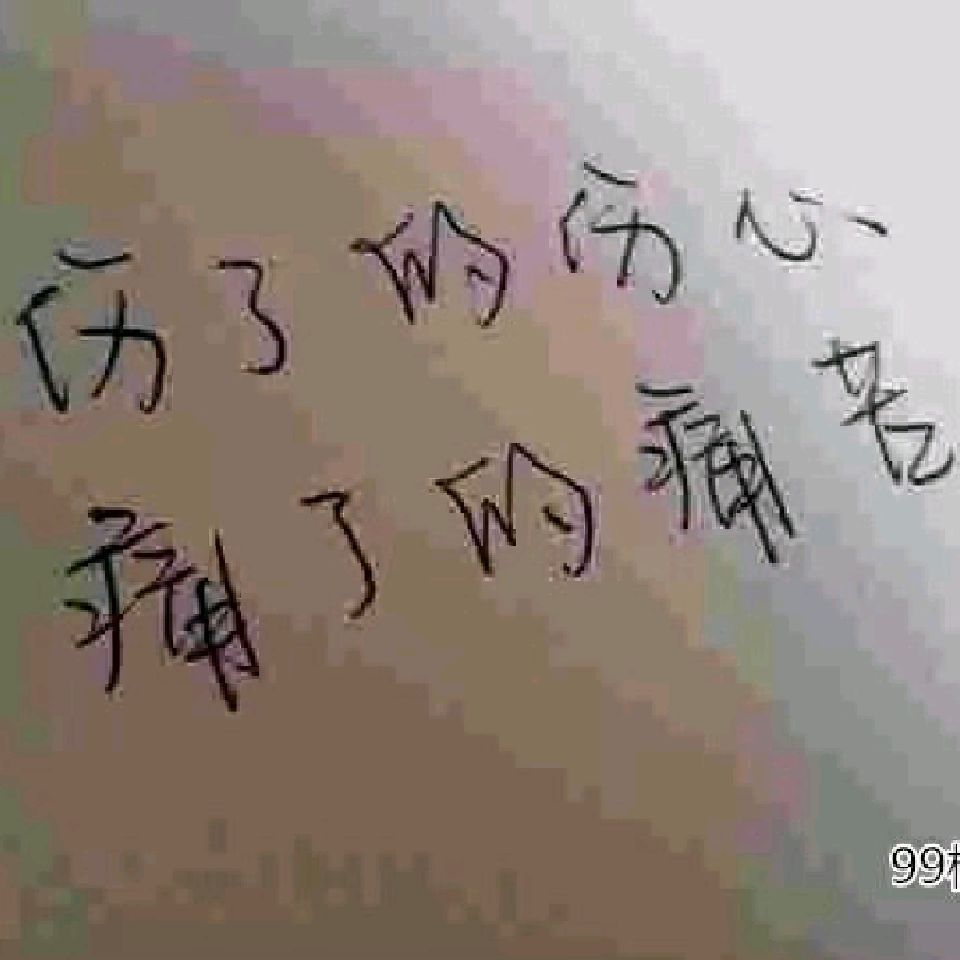 伤了的伤心
痛了的痛苦
99